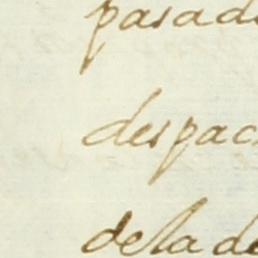 pasad
despac
dela de